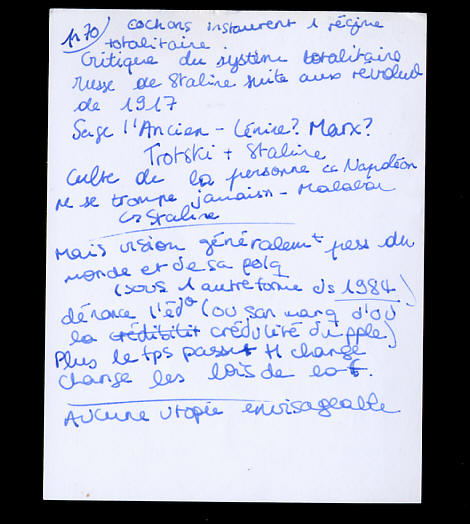 p 70 cochons instaurent 1 régime
totalitaire
Critique du système totalitaire
russe de Staline suite aux revolut
de 1917
Sage l'Ancien - Lénine? Marx?
Trotski + Staline
Culte de la personne Napoléon
ne se trompe jamais - Malabar
Staline
Mais vision généralemt pess du
monde et de sa polq
(sous 1 autre forme ds 1984)
dénonce l'éd° (ou son manq d'où
la crédibilit crédulité du pple)
Plus le tps passe + change
change les lois de
Aucune utopie envisageable